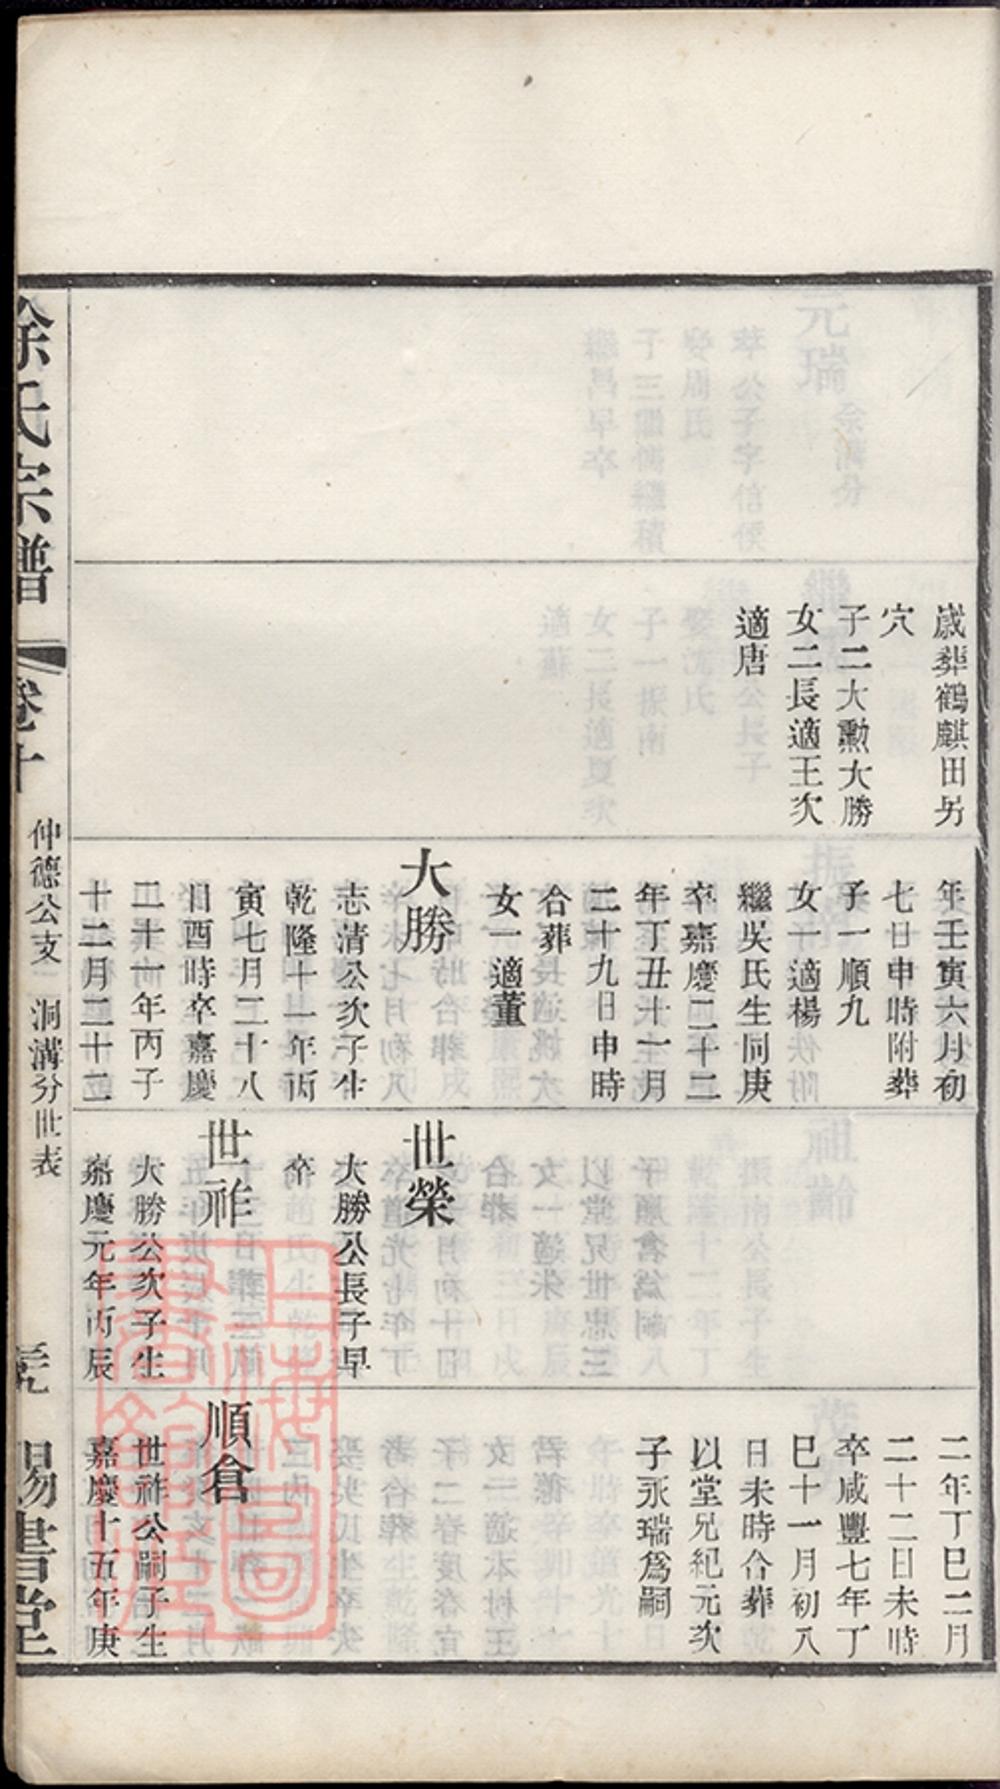 歲葬鶴麒田另
穴
子二大勳大勝
女二長適王次
適唐
年壬寅六月初
七日申時附葬
子一順九
女一適楊
繼吳氏生同庚
卒嘉慶二十二
年丁丑十一月
二十九日申時
合葬
女一適董
大勝
志清公次子生
乾隆十一年丙
寅七月二十八
日酉時卒嘉慶
二十一年丙子
十二月二十二
世榮
大勝公長子早
卒
世祚
大勝公次子生
嘉慶元年丙辰
二年丁巳二月
二十二日未時
卒咸豐七年丁
巳十一月初八
日未時合葬
以堂兄紀元次
子永瑞爲嗣
順倉
世祚公嗣子生
嘉慶十五年庚
徐氏宗譜
卷十
仲德公支 洞溝分世表
賜書堂
上海圖
書館藏